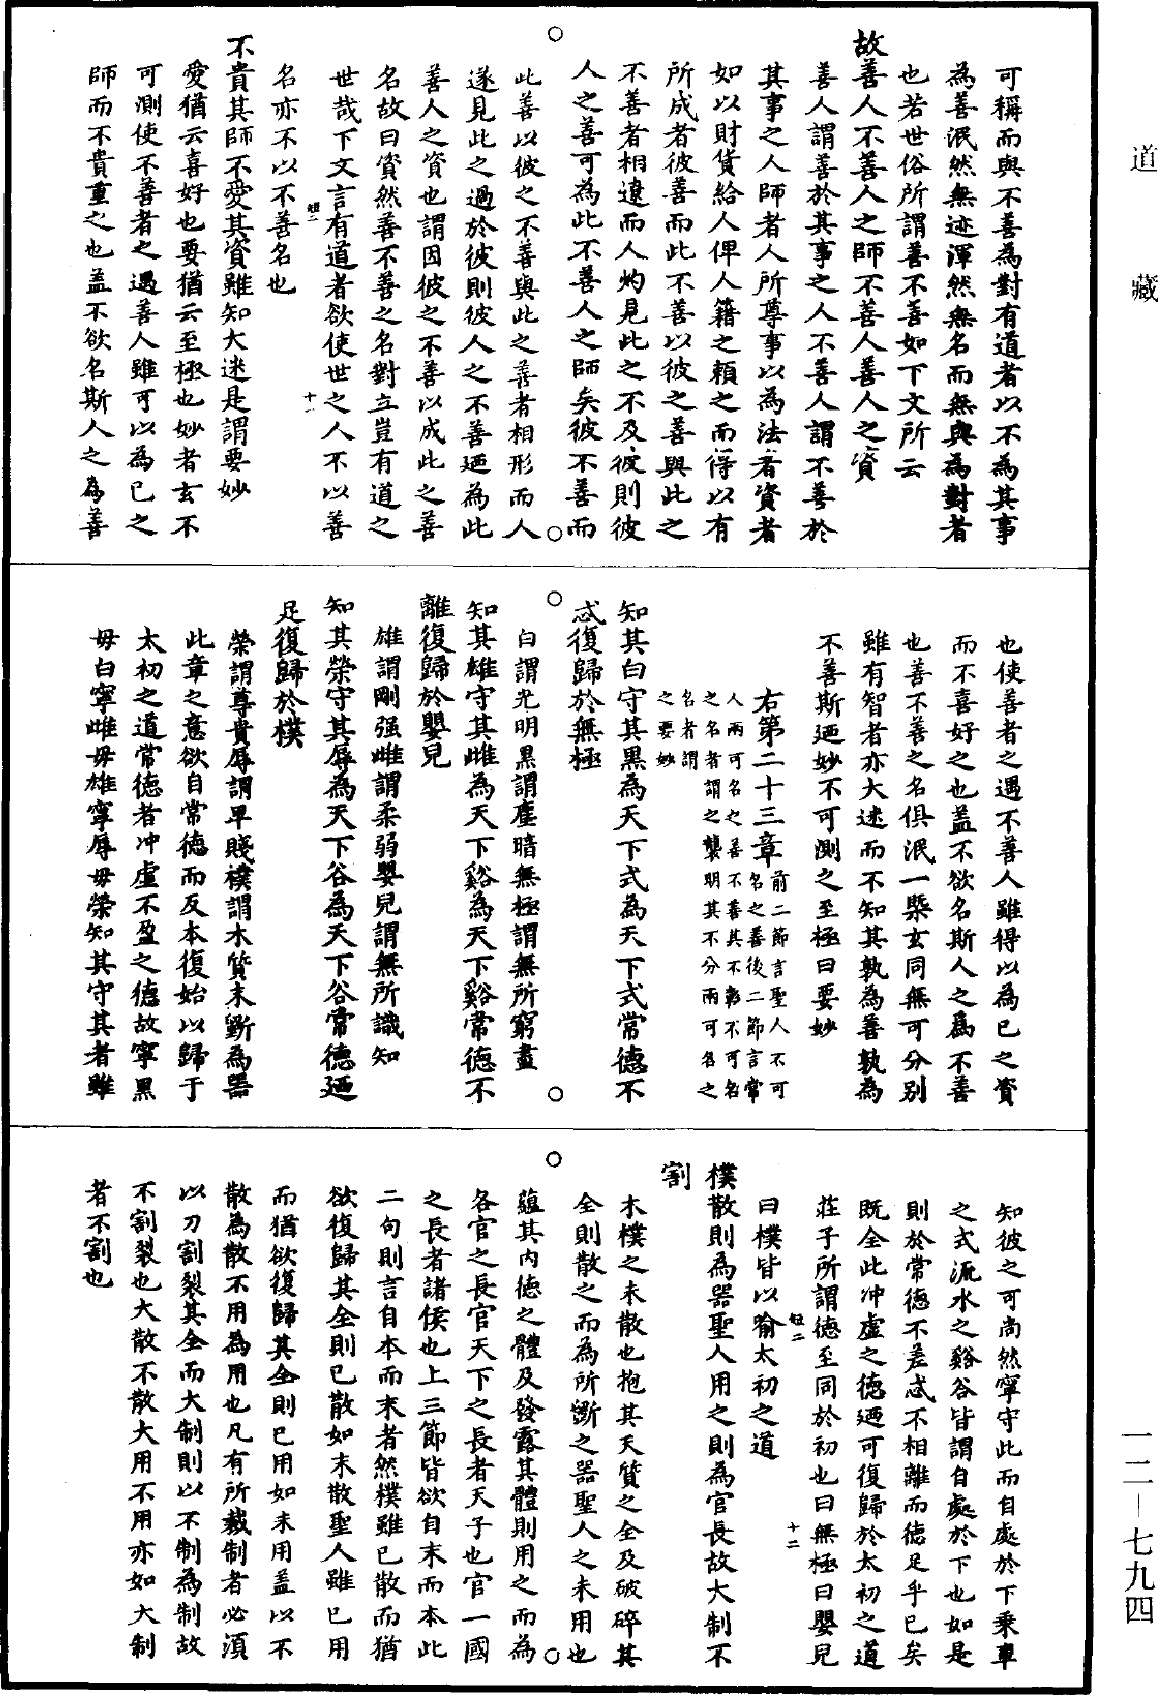 道藏
可稱而與不善為對有道者以不為其事
為善泯然無迹渾然無名而無與為對者
也若世俗所謂善不善如下文所云
故善人不善人之師不善人善人之資
善人謂善於其事之人不善人謂不善於
其事之人師者人所尊事以為法者資者
如以財貨給人俾人籍之賴之而得以有
所成者彼善而此不善以彼之善與此之
不善者相遠而人灼見此之不及彼則彼
人之善可為此不善人之師矣彼不善而
此善以彼之不善與此之善者相形而人
遂見此之過於彼則彼人之不善廼為此
善人之資也謂因彼之不善以成此之善
名故曰資然善不善之名對立豈有道之
世哉下文言有道者欲使世之人不以善
十一
名亦不以不善名也
短二
不貴其師不愛其資雖知大迷是謂要妙
愛猶云喜好也要猶云至極也妙者玄不
可測使不善者之遇善人雖可以為已之
師而不貴重之也盖不欲名斯人之為善
也使善者之遇不善人雖得以為已之資
而不喜好之也盖不欲名斯人之為不善
也善不善之名俱泯一槩玄同無可分別
雖有智者亦大迷而不知其孰為善孰為
不善斯廼妙不可測之至極曰要妙
右第二十三章前二節言聖人不可名之善後二節言常
人兩可名之善不善其不彰不可名
之名者謂之襲明其不分兩可名之
名者謂
之要妙
知其白守其黑為天下式為天下式常德不
忒復歸於無極
白謂光明黑謂塵暗無極謂無所窮盡
知其雄守其雌為天下谿為天下谿常德不
離復歸於嬰兒
雄謂剛强雌謂柔弱嬰兒謂無所識知
知其榮守其辱為天下谷為天下谷常德廼
足復歸於樸
榮謂尊貴辱謂卑賤樸謂木質未斵為器
此章之意欲自常德而反本復始以歸于
太初之道常德者冲虛不盈之德故寧黑
毋白寧雌毋雄寧辱毋榮知其守其者雖
知彼之可尚然寧守此而自處於下乘車
之式流水之谿谷皆謂自處於下也如是
則於常德不差忒不相離而德足乎已矣
既全此冲虛之德廼可復歸於太初之道
莊子所謂德至同於初也曰無極曰嬰兒
短二
十二
曰樸皆以喻太初之道
樸散則為器聖人用之則為官長故大制不
割
木樸之未散也抱其天質之全及破碎其
全則散之而為所斵之器聖人之未用也
蘊其內德之體及發露其體則用之而為
各官之長官天下之長者天子也官一國
之長者諸侯也上三節皆欲自末而本此
二句則言自本而末者然樸雖已散而猶
欲復歸其全則已散如未散聖人雖已用
而猶欲復歸其全則已用如未用盖以不
散為散不用為用也凡有所裁制者必須
以刀割裂其全而大制則以不制為制故
不割裂也大散不散大用不用亦如大制
者不割也
一二—七九四